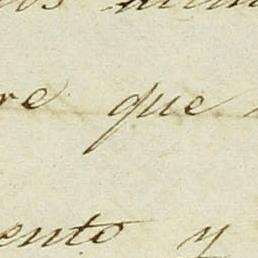 re que
ento y